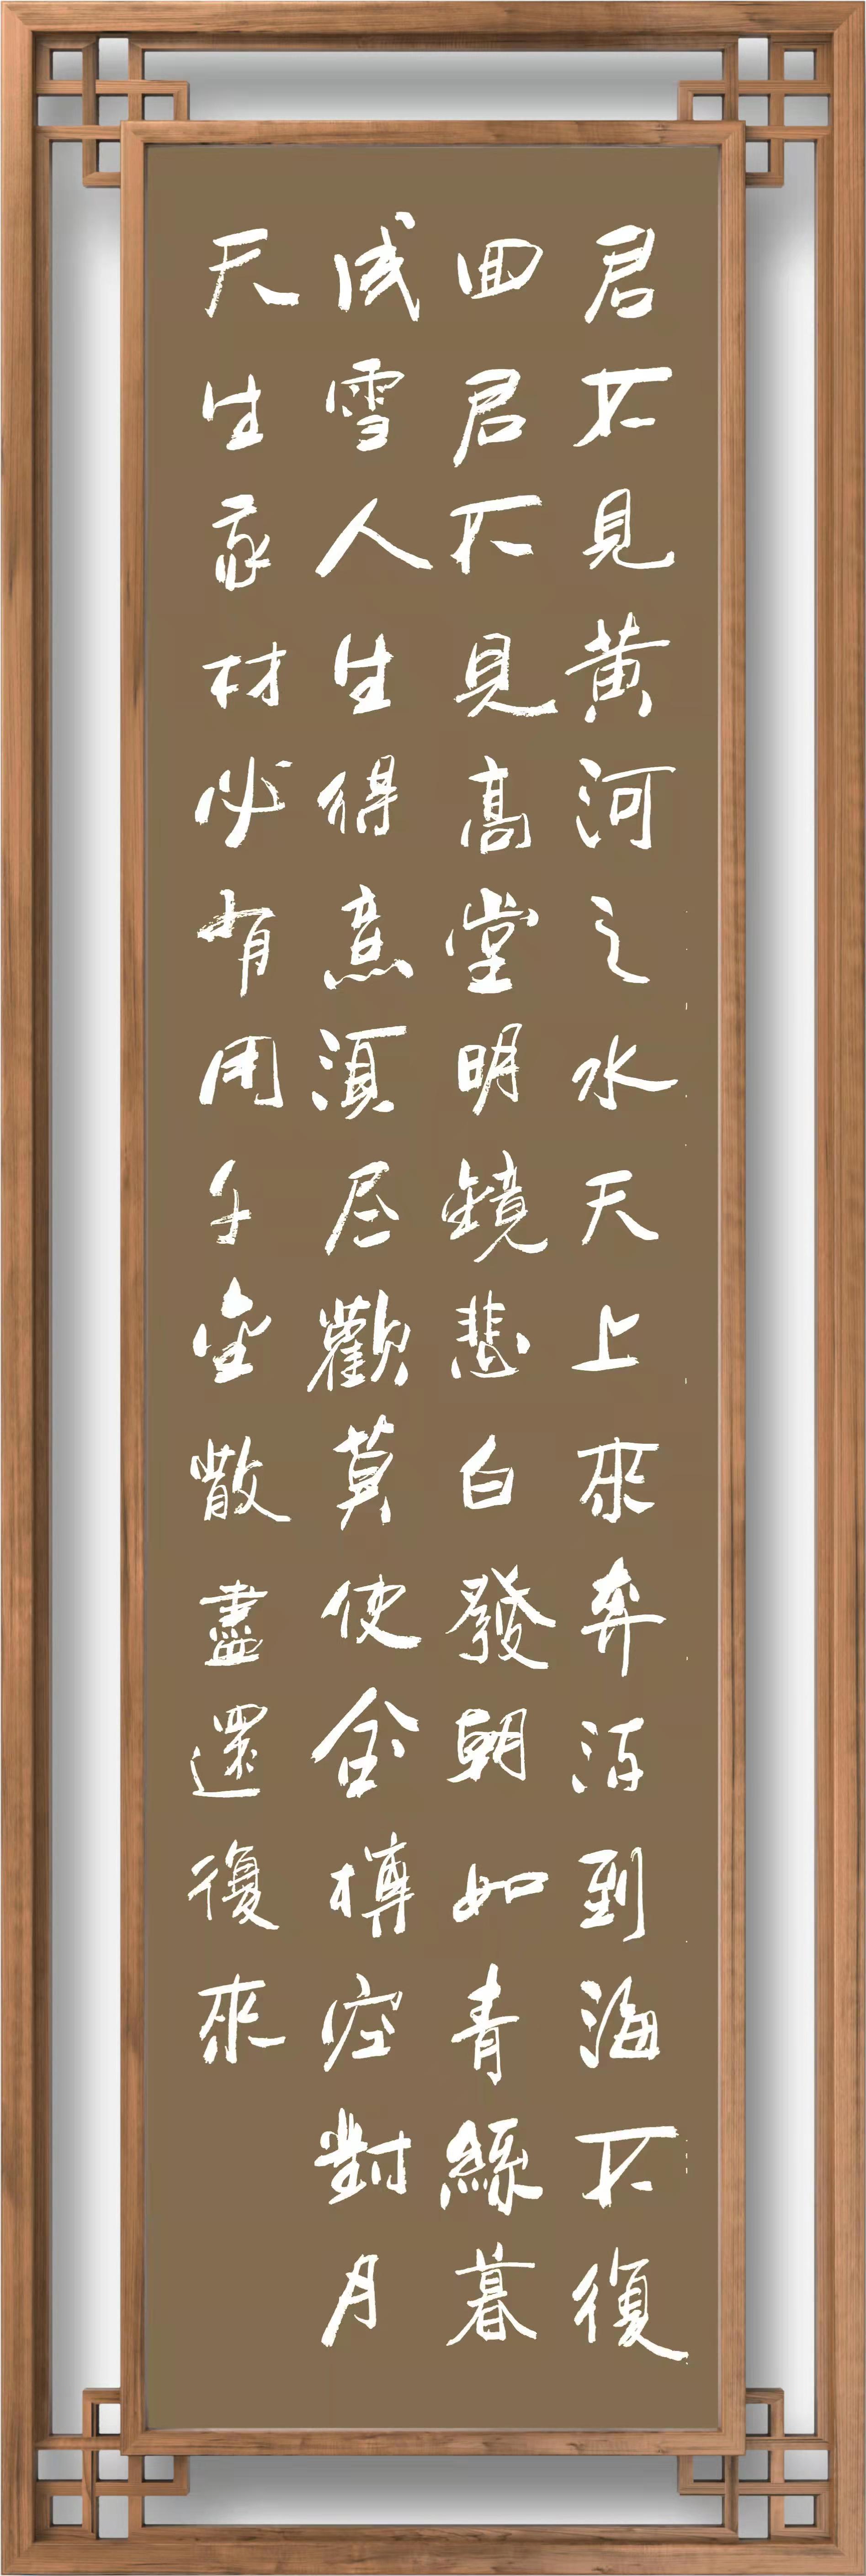 君不見黄河之水天上來奔流到海不復
回君不見高堂明鏡悲白發朝如青絲暮
成雪人生得意須尽歡莫使金樽空對月
天生我材必有用千金散盡還復來